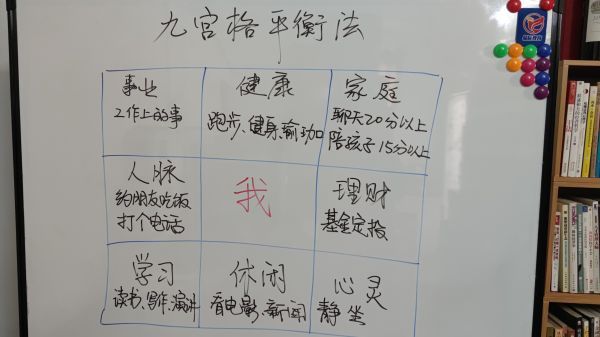 九宫格平衡法
事业
工作上的事
健康
跑步、健身、瑜珈
家庭
聊天20分以上
陪孩子15分以上
人脉
约朋友吃饭
打个电话
我
理财
基金定投
学习
读书、写作、演讲
休闲
看电影、新闻
心灵
静坐